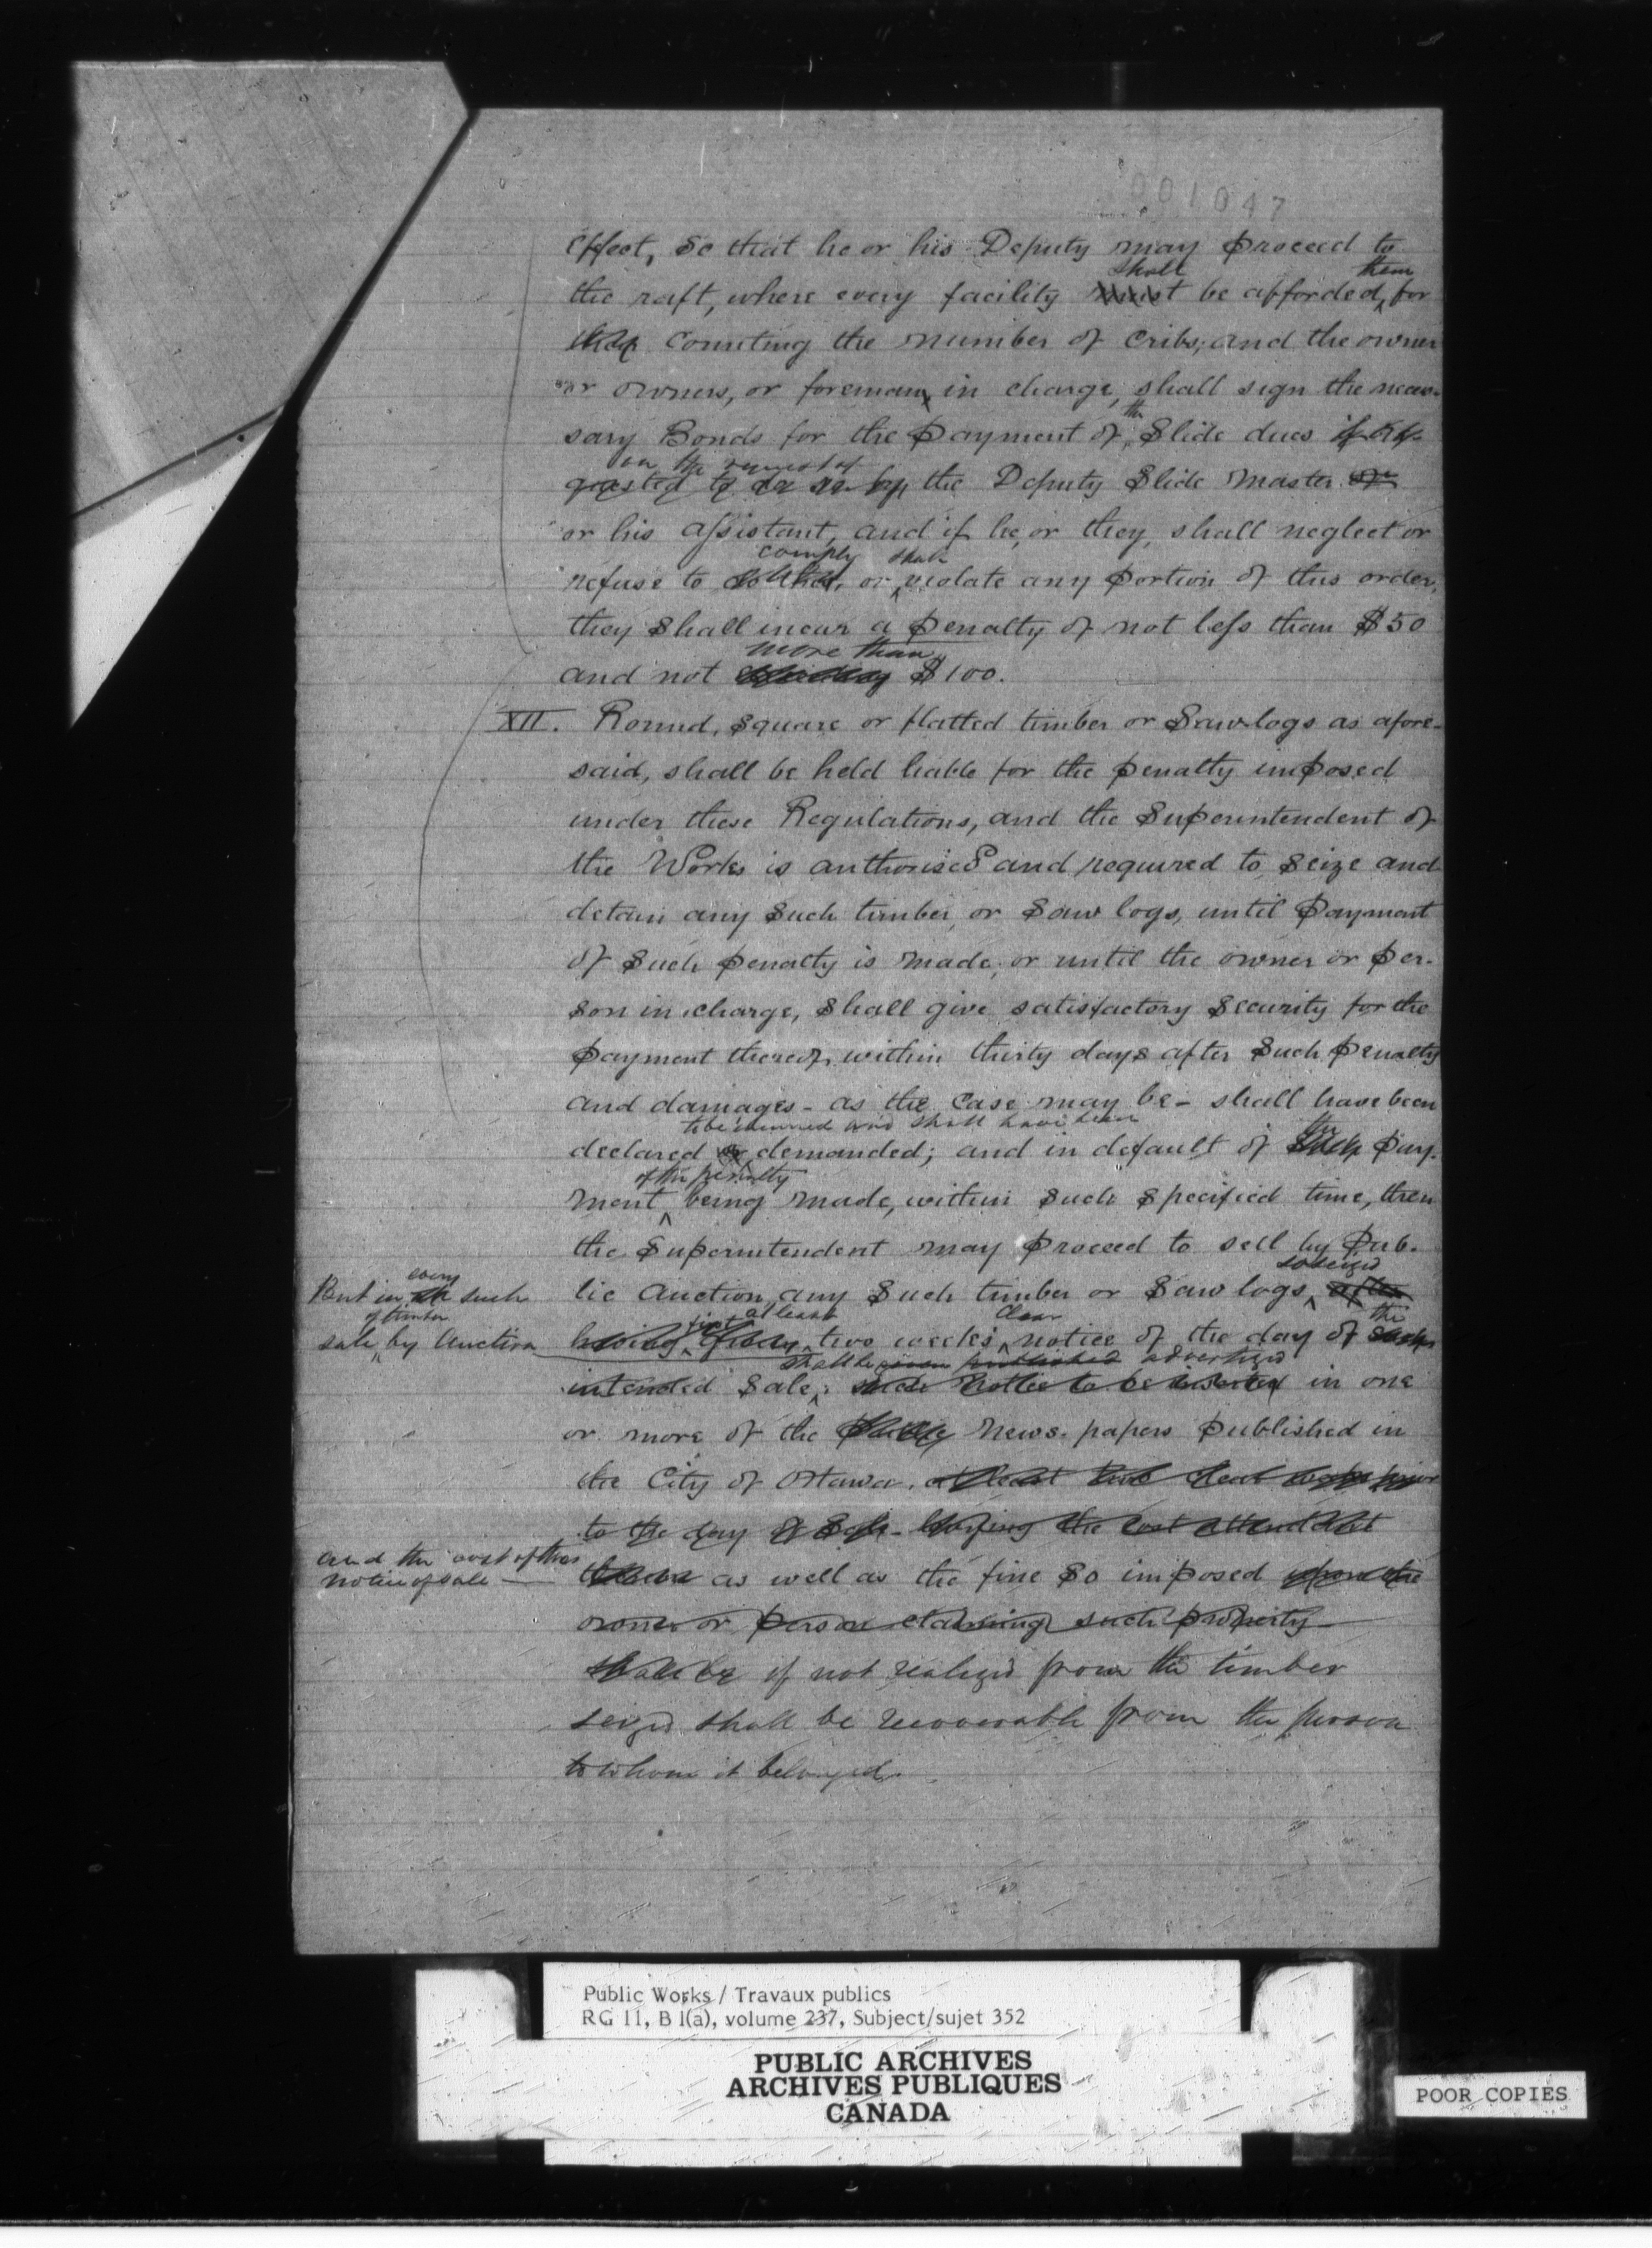 001047
effect, So that he or his Deputy may proceed to
shall them
the raft, where every facility must be afforded, for
their Counting the number of Cribs; and the owner
or owners, or foreman, in charge, shall sign the neces-
the
sary Bonds for the Payment of Slide dues if re-
on the request of
quested to do so by the Deputy Slide Master or
or his assistant, and if he, or they, shall neglect or
comply shall
refuse to do this, or violate any portion of this order,
they shall incur a penalty of not less than $50
more than
and not exceeding $100.
XII. Round, Square or flatted timber or Saw logs as afore-
said, shall be held liable for the penalty imposed
under these Regulations, and the Superintendent of
the Works is authorised and required to seize and
detain any such timber, or Saw logs, until Payment
of such penalty is made, or until the owner or per-
son in charge, shall give satisfactory Security for the
payment thereof, within thirty days after such Penalty
and damages - as the Case may be - shall have been
to be incurred and shall have been
declared or demanded; and in default of such pay-
the
of the penalty
ment being made, within such specified time, then
the Superintendent may proceed to sell by Pub-
so seized
lic Auction, any such timber or Saw logs, after
But in all such
every
of timber
sale by Auction
first at least clear the
having given two weeks notice of the day of such
shall be given published advertized
intended Sale; such notice to be inserted in one
or more of the Public News-papers published in
the City of Ottawa, at least two clear weeks prior
to the day of Sale - having the cost attendant
and the cost of this
notice of sale
thereon as well as the fine So imposed upon the
owner or person claiming such property
shall be if not realized from the timber
seized shall be recoverable from the person
to whom it belonged.
Public Works / Travaux publics
RG 11, B 1(a), volume 237, Subject/sujet 352
PUBLIC ARCHIVES
ARCHIVES PUBLIQUES
CANADA
POOR COPIES